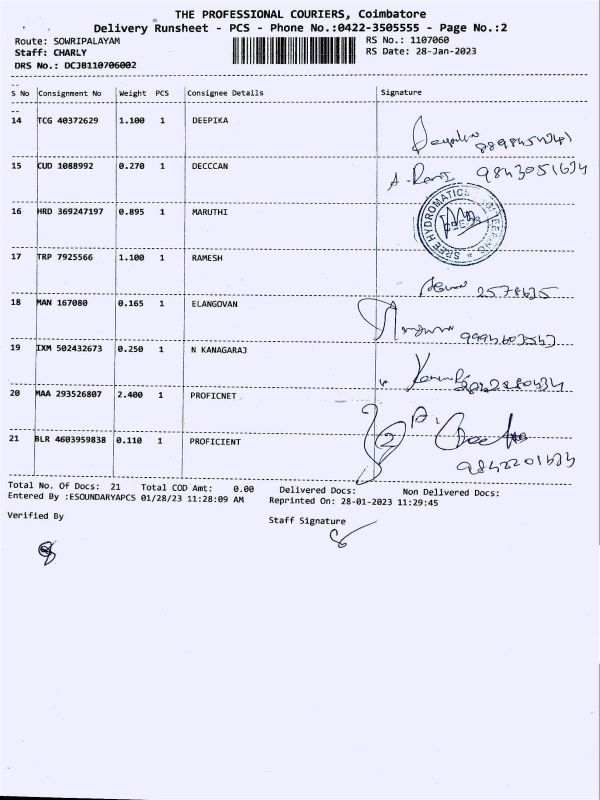 THE PROFESSIONAL COURIERS, Coimbatore
Delivery Runsheet - PCS - Phone No.:0422-3505555 - Page No.:2
Route: SOWRIPALAYAM RS No.: 1107060
Staff: CHARLY RS Date: 28-Jan-2023
DRS No.: DCJB110706002
S No Consignment No Weight PCS Consignee Details Signature
14 TCG 40372629 1.100 1 DEEPIKA
15 CUD 1088992 0.270 1 DECCCAN
A. Rani 9843051634
16 HRD 369247197 0.895 1 MARUTHI
SREE HYDROMATICS ENGINEERING
17 TRP 7925566 1.100 1 RAMESH
18 MAN 167080 0.165 1 ELANGOVAN
19 IXM 502432673 0.250 1 N KANAGARAJ
20 MAA 293526807 2.400 1 PROFICNET
21 BLR 4603959838 0.110 1 PROFICIENT
9842201634
Total No. Of Docs: 21 Total COD Amt: 0.00 Delivered Docs: Non Delivered Docs:
Entered By :ESOUNDARYAPCS 01/28/23 11:28:09 AM Reprinted On: 28-01-2023 11:29:45
Verified By Staff Signature